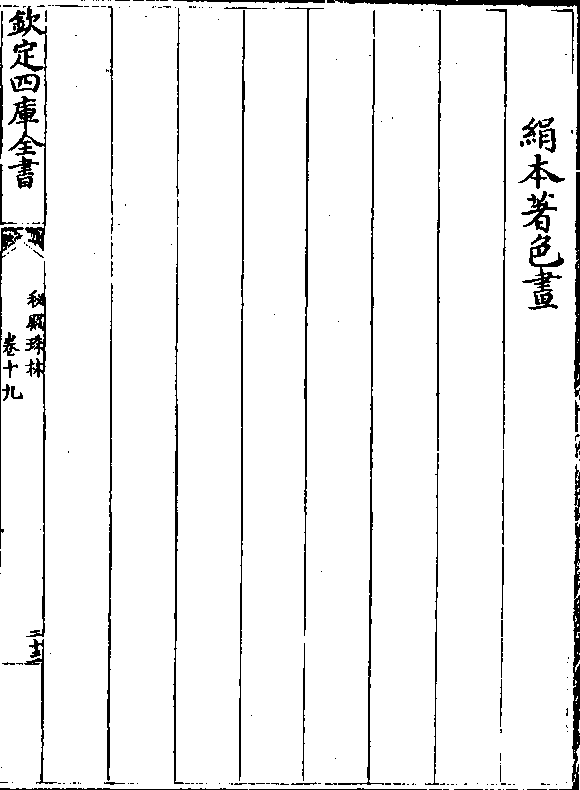 絹本著色畫
欽定四庫全書
秘殿珠林
卷十九